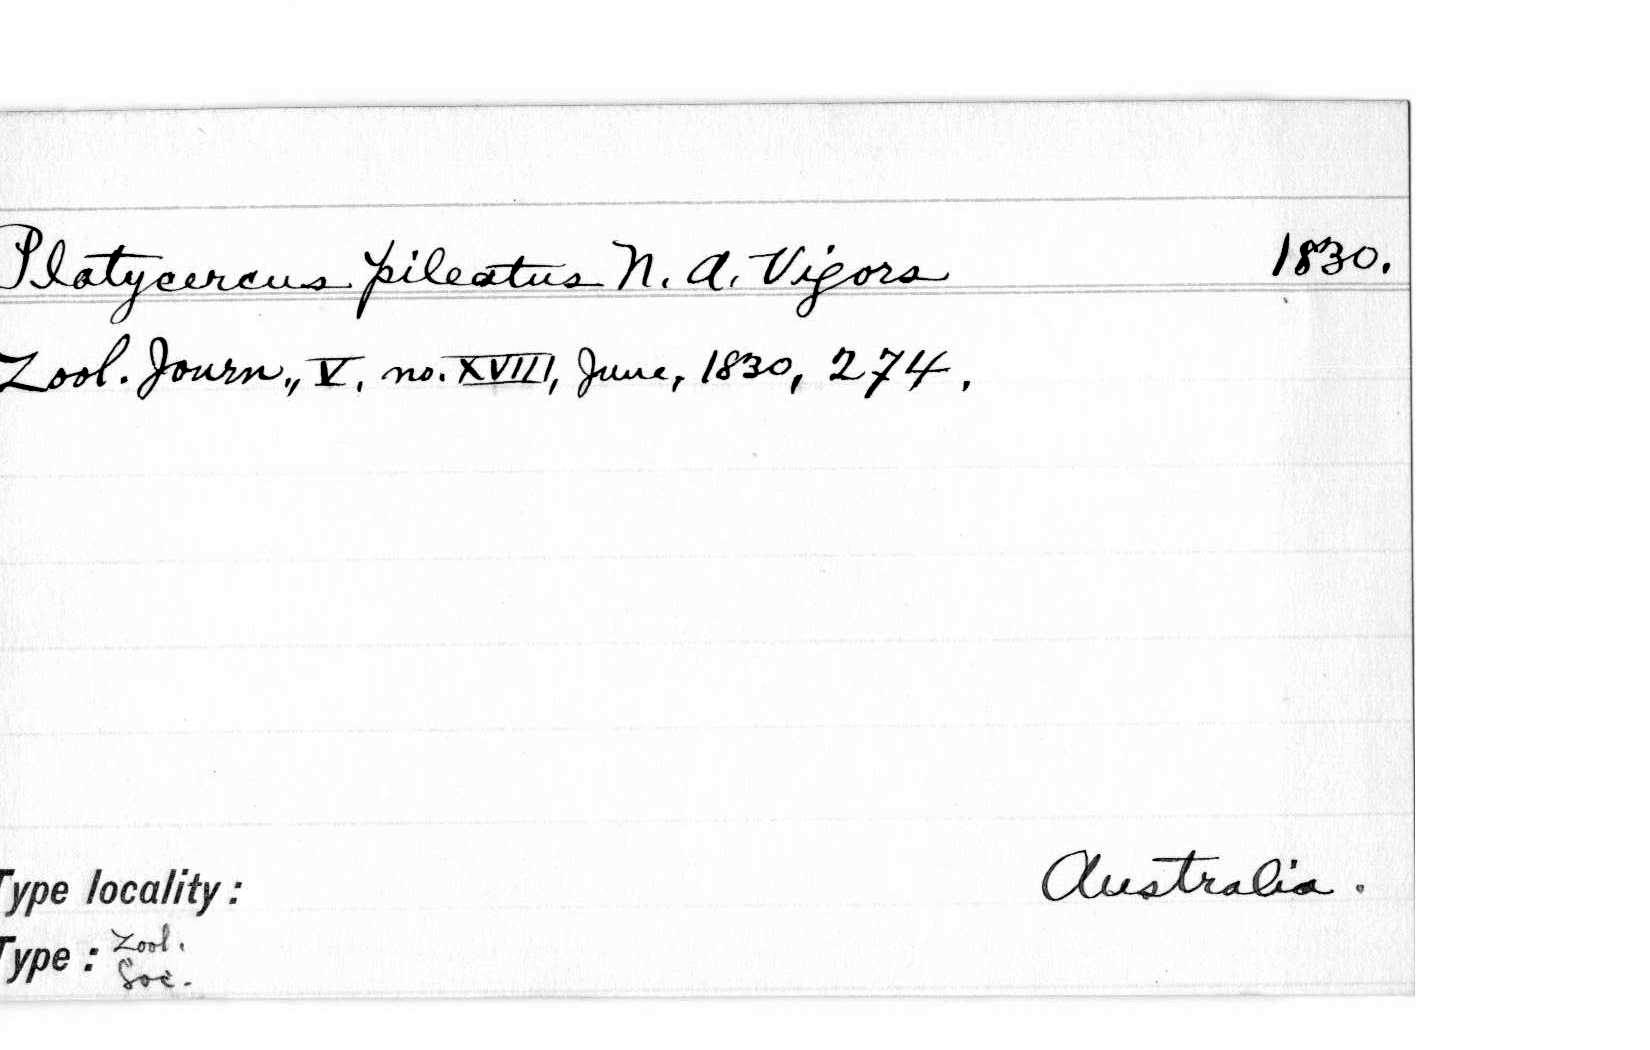 Platycercus pileatus N. A. Vigors 1830.
Zool. Journ., V, no. XVIII, June, 1830, 274.
Type locality: Australia.
Type: Zool.
Soc.